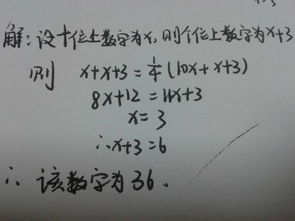 解:设十位上数字为x,则个位上数字为x+3
则 x+x+3=1/4(10x+x+3)
8x+12=11x+3
x=3
∴x+3=6
∴该数字为36.